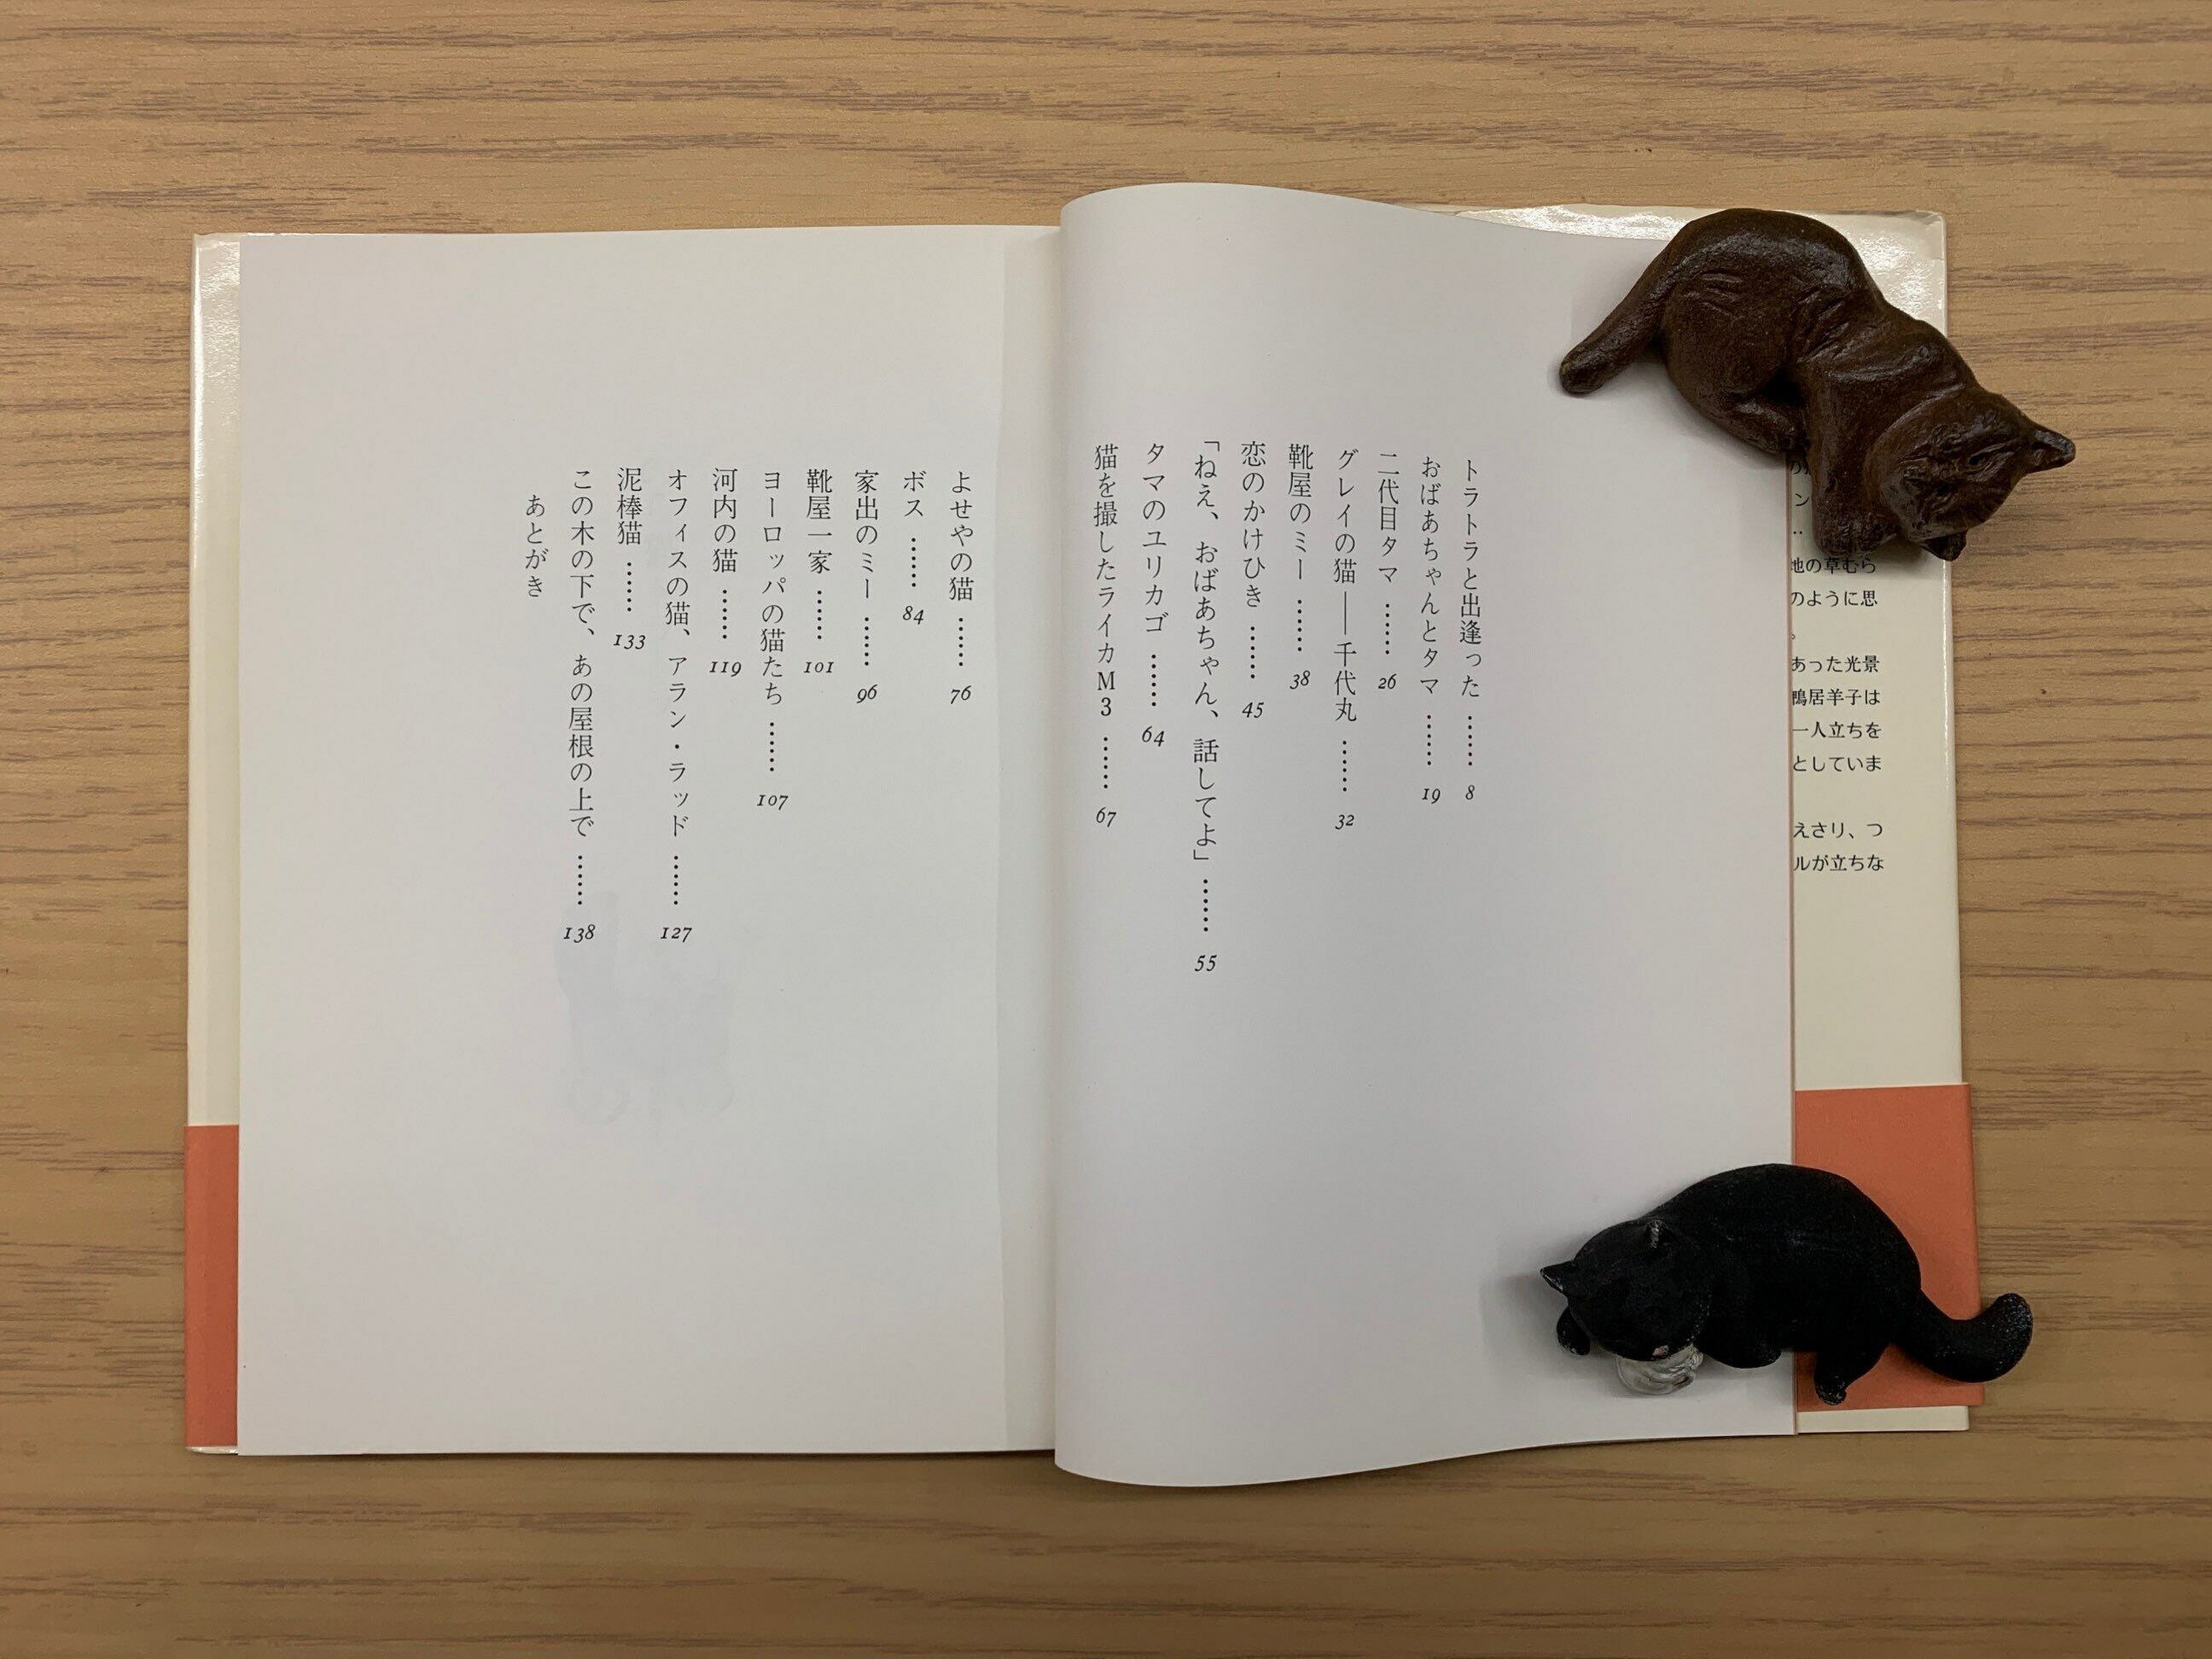 トラトラと出逢った …… 8
おばあちゃんとタマ …… 19
二代目タマ …… 26
グレイの猫――千代丸 …… 32
靴屋のミー …… 38
恋のかけひき …… 45
「ねえ、おばあちゃん、話してよ」 …… 55
タマのユリカゴ …… 64
猫を撮したライカM3 …… 67
よせやの猫 …… 76
ボス …… 84
家出のミー …… 96
靴屋一家 …… 101
ヨーロッパの猫たち …… 107
河内の猫 …… 119
オフィスの猫、アラン・ラッド …… 127
泥棒猫 …… 133
この木の下で、あの屋根の上で …… 138
あとがき
ン
‥
地の草むら
のように思
。
あった光景
鴨居羊子は
一人立ちを
としていま
えさり、つ
ルが立ちな